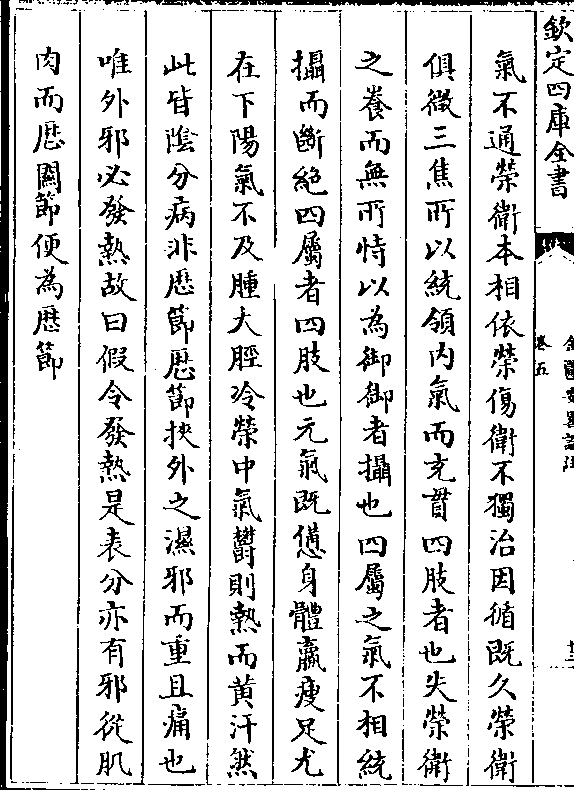 欽定四庫全書
卷五
氣不通榮衛本相依榮傷衛不獨治因循既久榮衛
俱微三焦所以統領内氣而充貫四肢者也失榮衛
之養而無所恃以為御御者攝也四屬之氣不相統
攝而斷絶四屬者四肢也元氣既憊身體羸瘦足尤
在下陽氣不及腫大脛冷榮中氣鬱則熱而黄汗然
此皆陰分病非歴節歴節挾外之濕邪而重且痛也
唯外邪必發熱故曰假令發熱是表分亦有邪從肌
肉而歴關節便為歴節